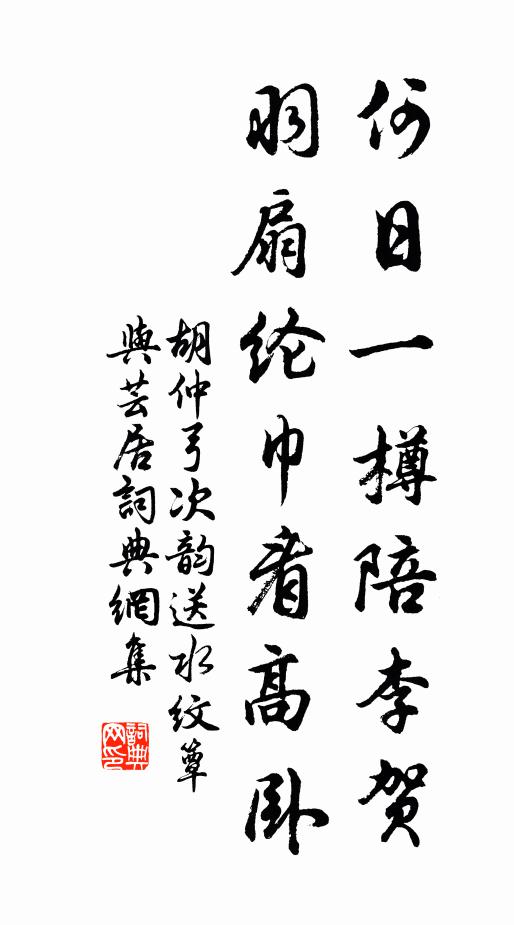 何日一樽陪李賀
羽扇纶巾看高卧
胡仲弓次韵送水纹簟
與芸居詞典網集
詞典网印